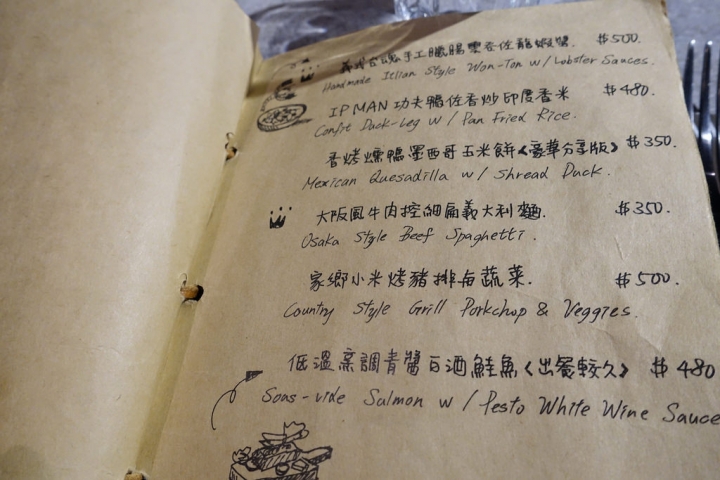 義式古魂手工臘腸雲吞佐龍蝦醬. $500.
Handmade Itlian Style Won-Ton w/ Lobster Sauces.
IP MAN 功夫鴨佐香炒印度香米 $480.
Confit Duck-Leg w/ Pan Fried Rice.
香烤燻鴨墨西哥玉米餅《豪華分享版》 $350.
Mexican Quesadilla w/ Shread Duck.
大阪風牛肉控細扁義大利麵. $350.
Osaka Style Beef Spaghetti.
家鄉小米烤豬排与蔬菜. $500.
Country Style Grill Porkchop & Veggies.
低溫烹調青醬白酒鮭魚《出餐較久》 $480
Soas-vide Salmon w/ Pesto White Wine Sauce